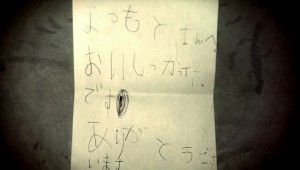 よつもとさんへ
おいしかった
です
ありがとうござ
います